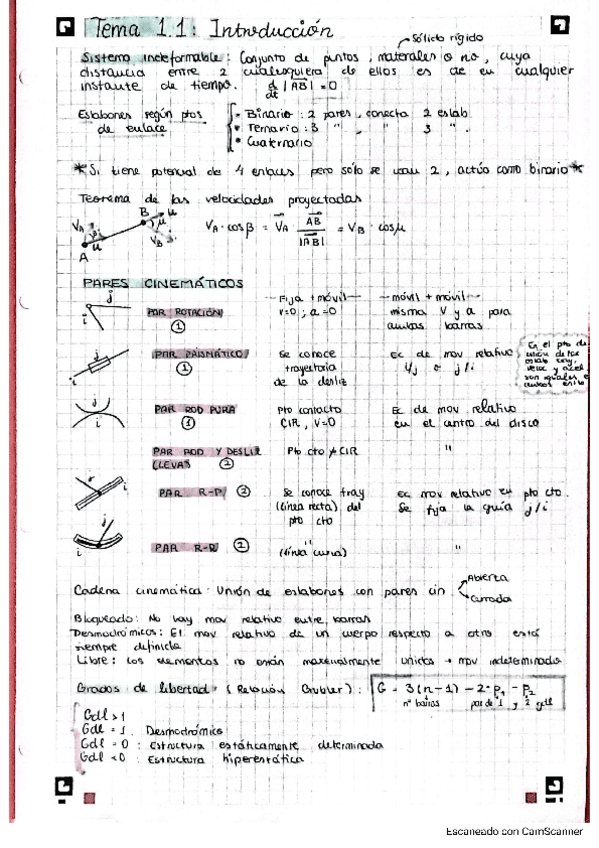 Tema 1.1: Introducción
Sólido rígido
Sistema indeformable: Conjunto de puntos, materiales o no, cuya
distancia entre 2 cualesquiera de ellos es cte en cualquier
instante de tiempo. d/dt |AB| = 0
Eslabones según ptos de enlace
• Binario: 2 pares, conecta 2 eslab.
• Ternario: 3 " , " 3 ".
• Cuaternario
* Si tiene potencial de 4 enlaces pero sólo se usan 2, actúa como binario *
Teorema de las velocidades proyectadas
V_A · cos β = V_A AB/|AB| = V_B · cos μ
A B V_A V_B β μ u u
PARES CINEMÁTICOS
Fija + móvil — móvil + móvil
i j PAR ROTACIÓN ① V=0; a=0 misma V y a para ambas barras.
i j PAR PRISMÁTICO ① Se conoce trayectoria de la desliz Ec de mov relativo i/j o j/i
En el pto de
i j PAR ROD PURA ① Pto contacto CIR, V=0 Ec de mov relativo en el centro del disco
PAR ROD Y DESLIZ (LEVAS) ② Pto cto ≠ CIR "
i PAR R-P ② Se conoce tray (línea recta) del pto cto Ec mov relativo en pto cto. Se fija la guía j/i
i j PAR R-R ② (línea curva) "
Cadena cinemática: Unión de eslabones con pares cin Abierta
Cerrada
Bloqueado: No hay mov relativo entre barras
Desmodrómicos: El mov relativo de un cuerpo respecto a otro está
siempre definido
Libre: Los elementos no están materialmente unidos → mov indeterminado
Grados de libertad: (Relación Grubler): G = 3(n-1) - 2·p₁ - p₂
nº barras par de 1 y 2 gdl
Gdl > 1
Gdl = 1. Desmodrómico
Gdl = 0: Estructura estáticamente determinada
Gdl < 0: Estructura hiperestática
Escaneado con CamScanner